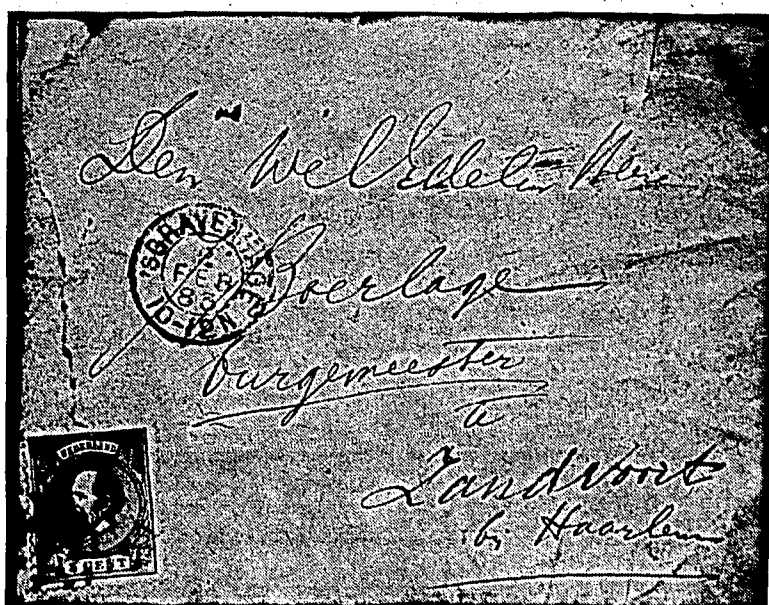 Den Wel Edelen Heer
Boerlage
burgemeester
te
Zandvoort
bij Haarlem
'SGRAVENHAGE
FEB
NEDERLAND
CENT